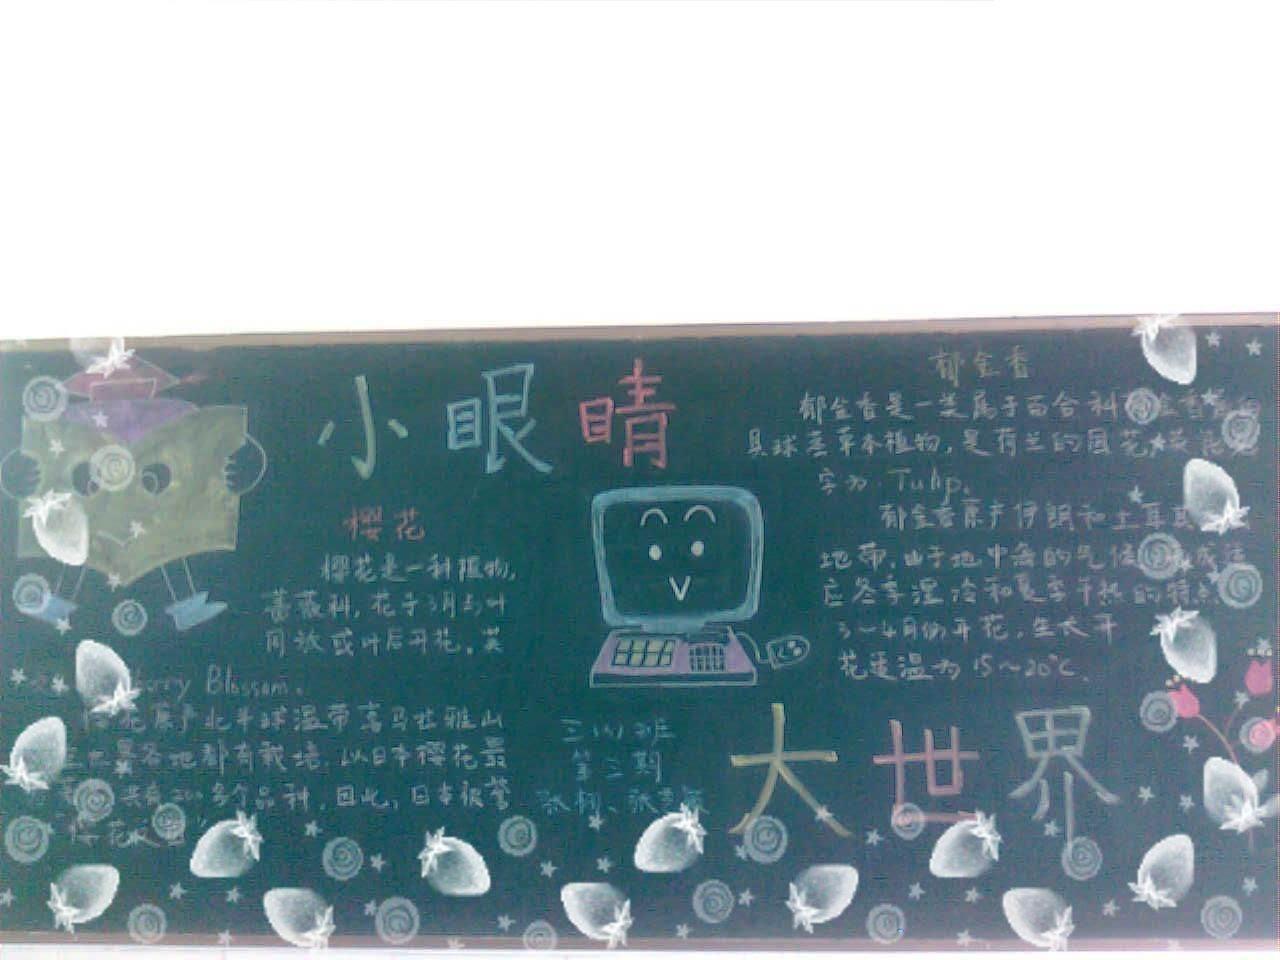 小眼睛
樱花
樱花是一种植物,
蔷薇科,花于3月与叶
同放或叶后开花。英
Blossom.
花原产北半球温带喜马拉雅山
世界各地都有栽培,以日本樱花最
共有200多个品种,因此,日本被誉
三(4)班
第三期
郁金香
郁金香是一类属于百合科郁金香属的
具球茎草本植物,是荷兰的国花,
Tulip。
郁金香原产伊朗和土耳其
地带,由于地中海的气候,
应冬季湿冷和夏季干热的特点
3~4月份开花,生长开
花适温为15~20℃.
大世界